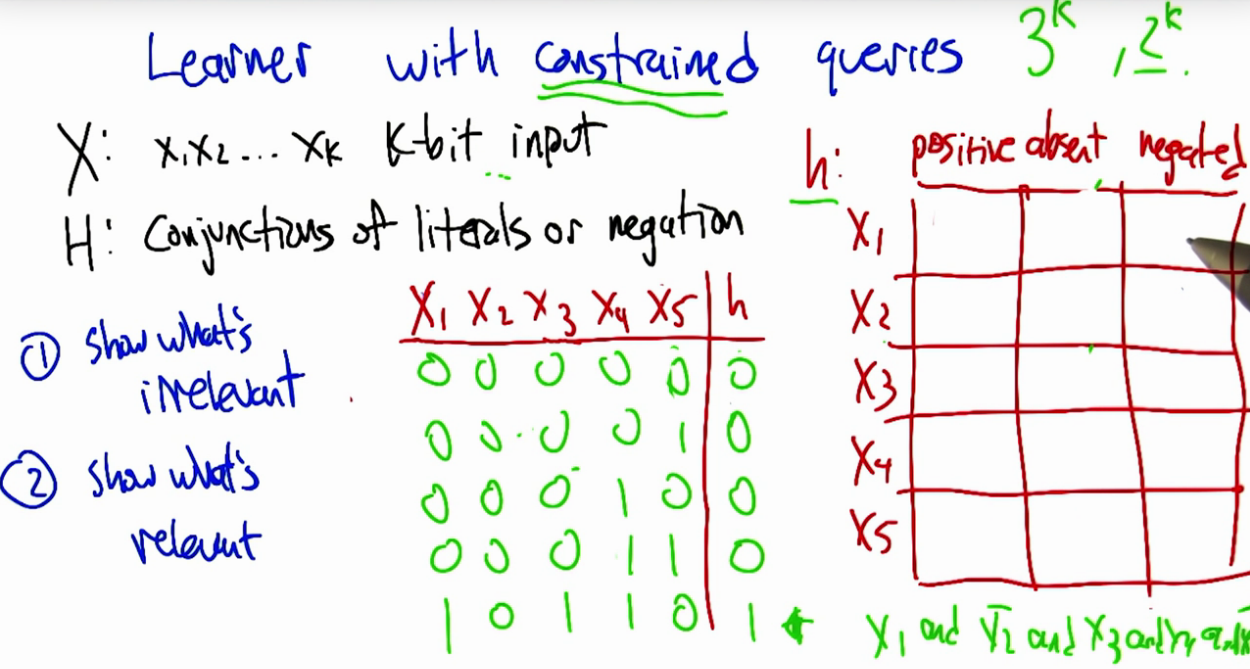 Learner with constrained queries 3^k , 2^k .
X: x1 x2 ... xk k-bit input
H: Conjunctions of literals or negation
① show what's
irrelevant
② show what's
relevant
X1 X2 X3 X4 X5 h
0 0 0 0 0 0
0 0 0 0 1 0
0 0 0 1 0 0
0 0 0 1 1 0
1 0 1 1 0 1
h: positive absent negated
X1
X2
X3
X4
X5
X1 and X̄2 and X3 and X4 and